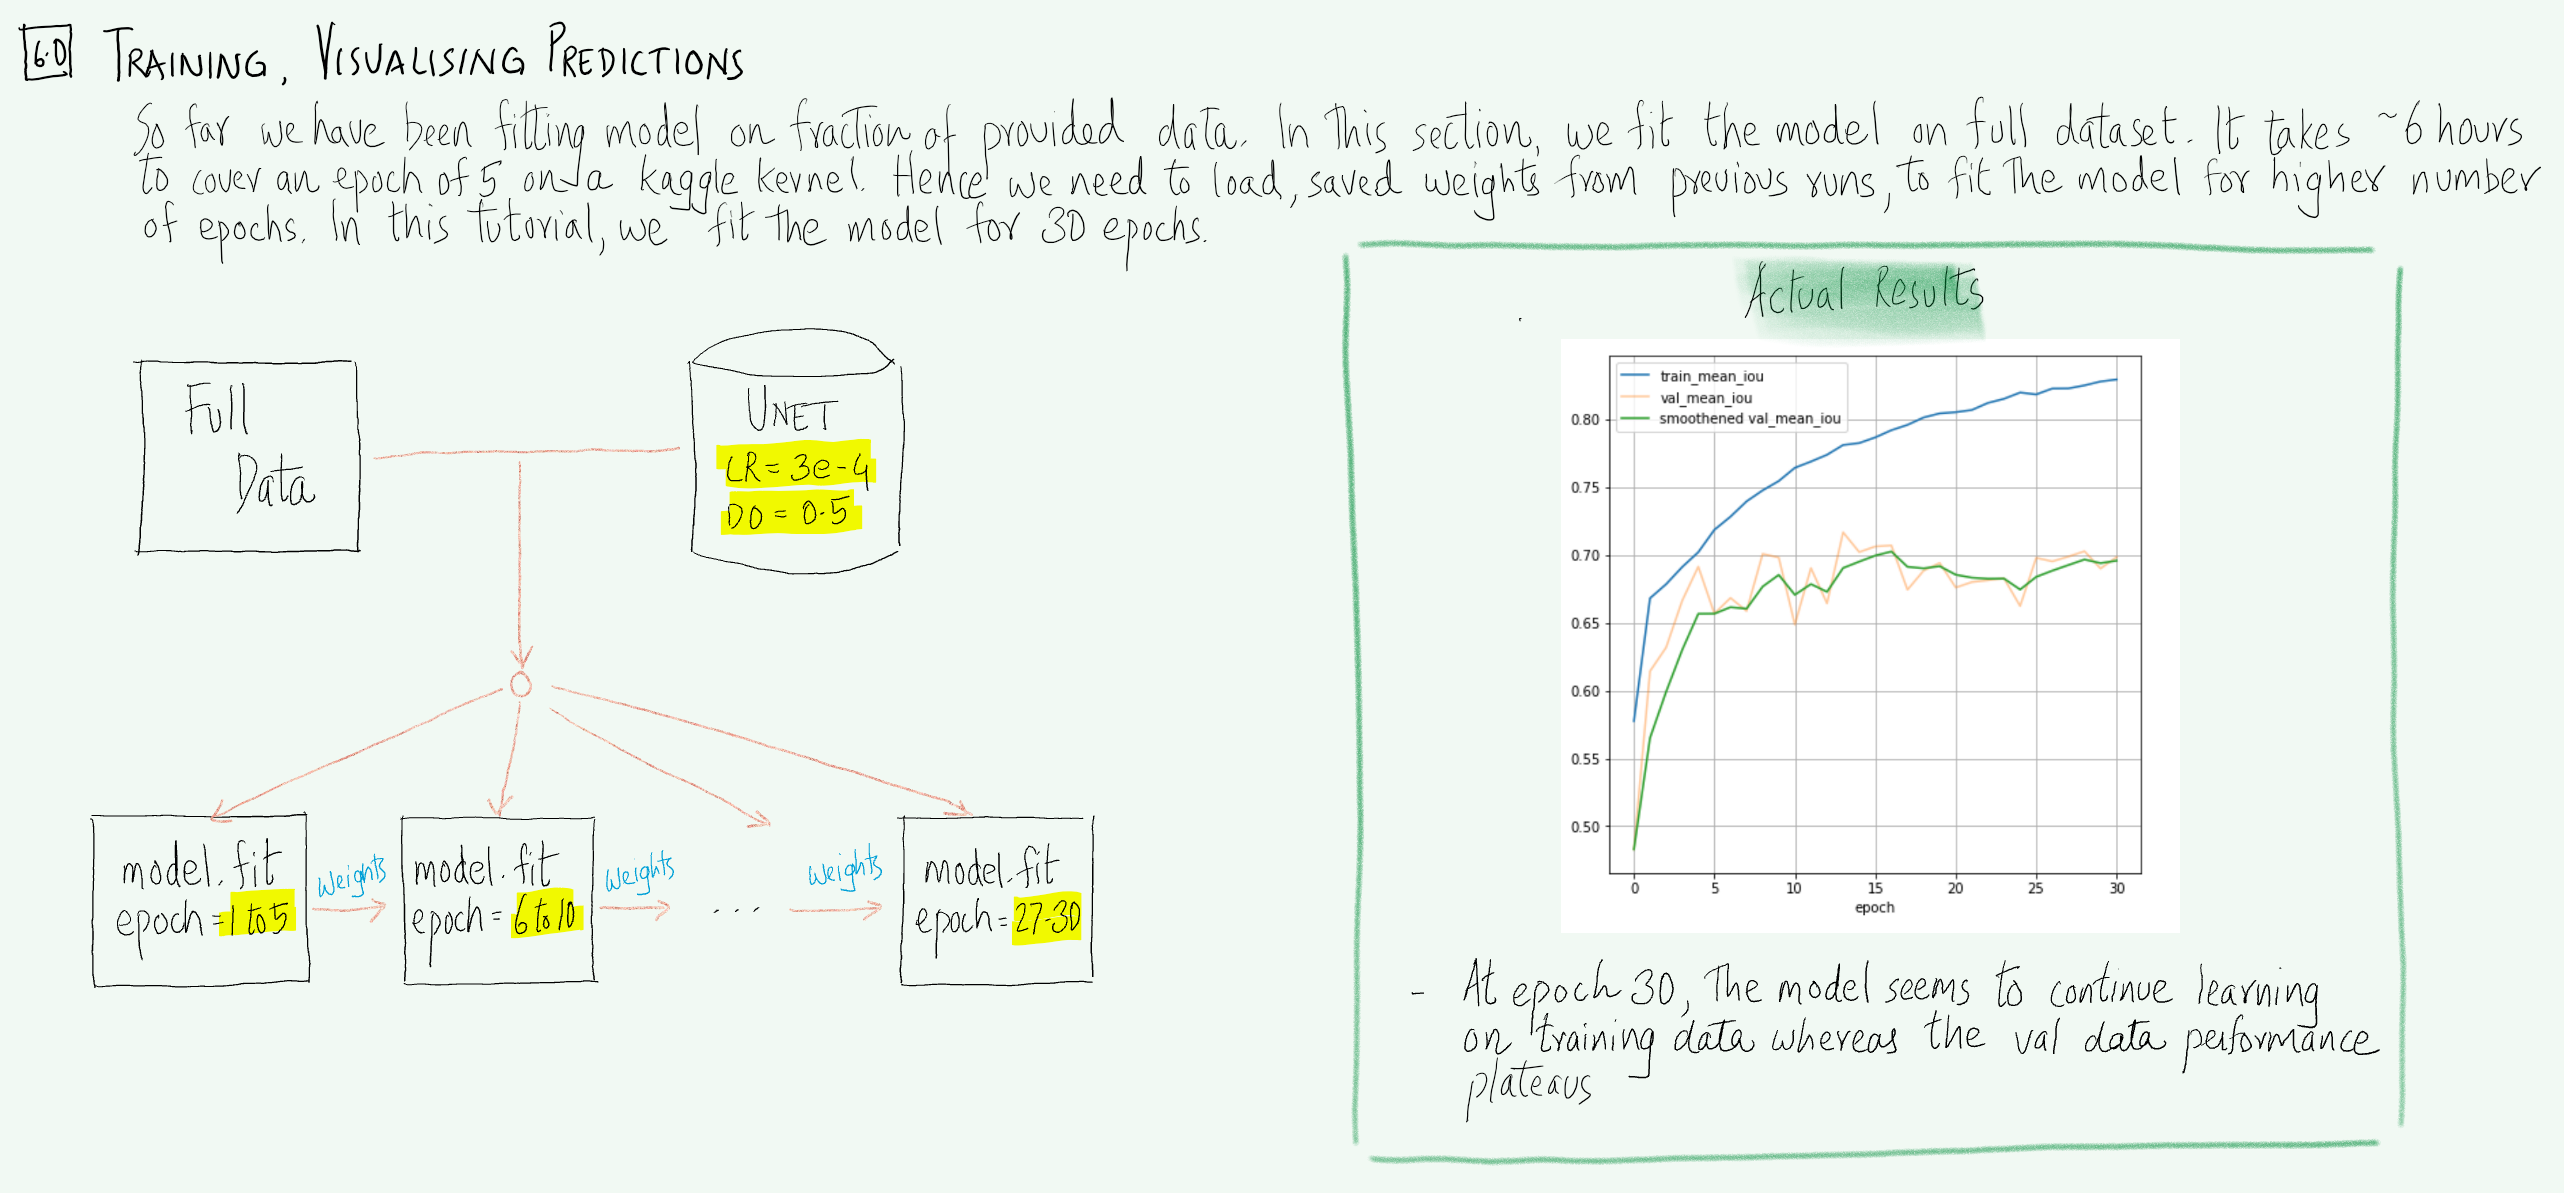 6.0 TRAINING, VISUALISING PREDICTIONS
So far we have been fitting model on fraction of provided data. In this section, we fit the model on full dataset. It takes ~6 hours
to cover an epoch of 5 on a kaggle kernel. Hence we need to load, saved weights from previous runs, to fit the model for higher number
of epochs. In this tutorial, we fit the model for 30 epochs.
Full
Data
UNET
LR = 3e-4
DO = 0.5
model.fit
epoch = 1 to 5
weights
model.fit
epoch = 6 to 10
weights
...
weights
model.fit
epoch = 27-30
Actual Results
train_mean_iou
val_mean_iou
smoothened val_mean_iou
0.80
0.75
0.70
0.65
0.60
0.55
0.50
0 5 10 15 20 25 30
epoch
- At epoch 30, The model seems to continue learning
on training data whereas the val data performance
plateaus